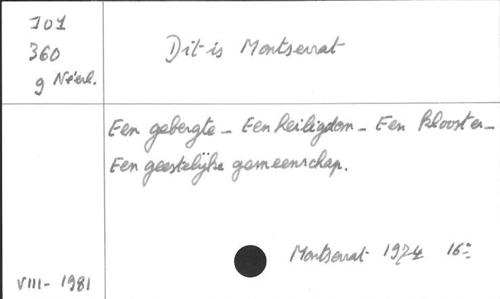 101
360
g Néerl.
Dit is Montserrat
Een gebergte - Een heiligdom - Een klooster -
Een geestelijke gemeenschap.
Montserrat 1974 16º
VIII - 1981